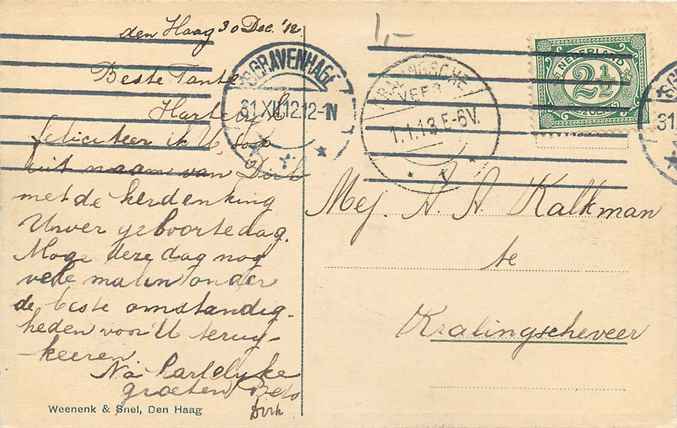 den Haag 30 Dec. '12
Beste Tante
Hartelijk
feliciteer ik U, ook
uit naam van Dirk
met de herdenking
Uwer geboortedag.
Moge deze dag nog
vele malen onder
de beste omstandig-
heden voor U terug-
keeren.
Na hartelijke
groeten Bets
Dirk
Weenenk & Snel, Den Haag
1,-
'S GRAVENHAGE
31 XII 12 12-1N
KRALINGSCHE
VEER
1.1.13 5-6V.
NEDERLAND
2½
Mej. A. A. Kalkman
te
Kralingscheveer
31